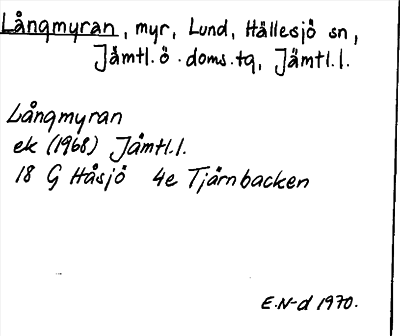 Långmyran, myr, Lund, Hällesjö sn,
Jämtl.ö.doms.tg, Jämtl.l.
Långmyran
ek (1968) Jämtl.l.
18 G Håsjö 4e Tjärnbacken
E.N-d 1970.